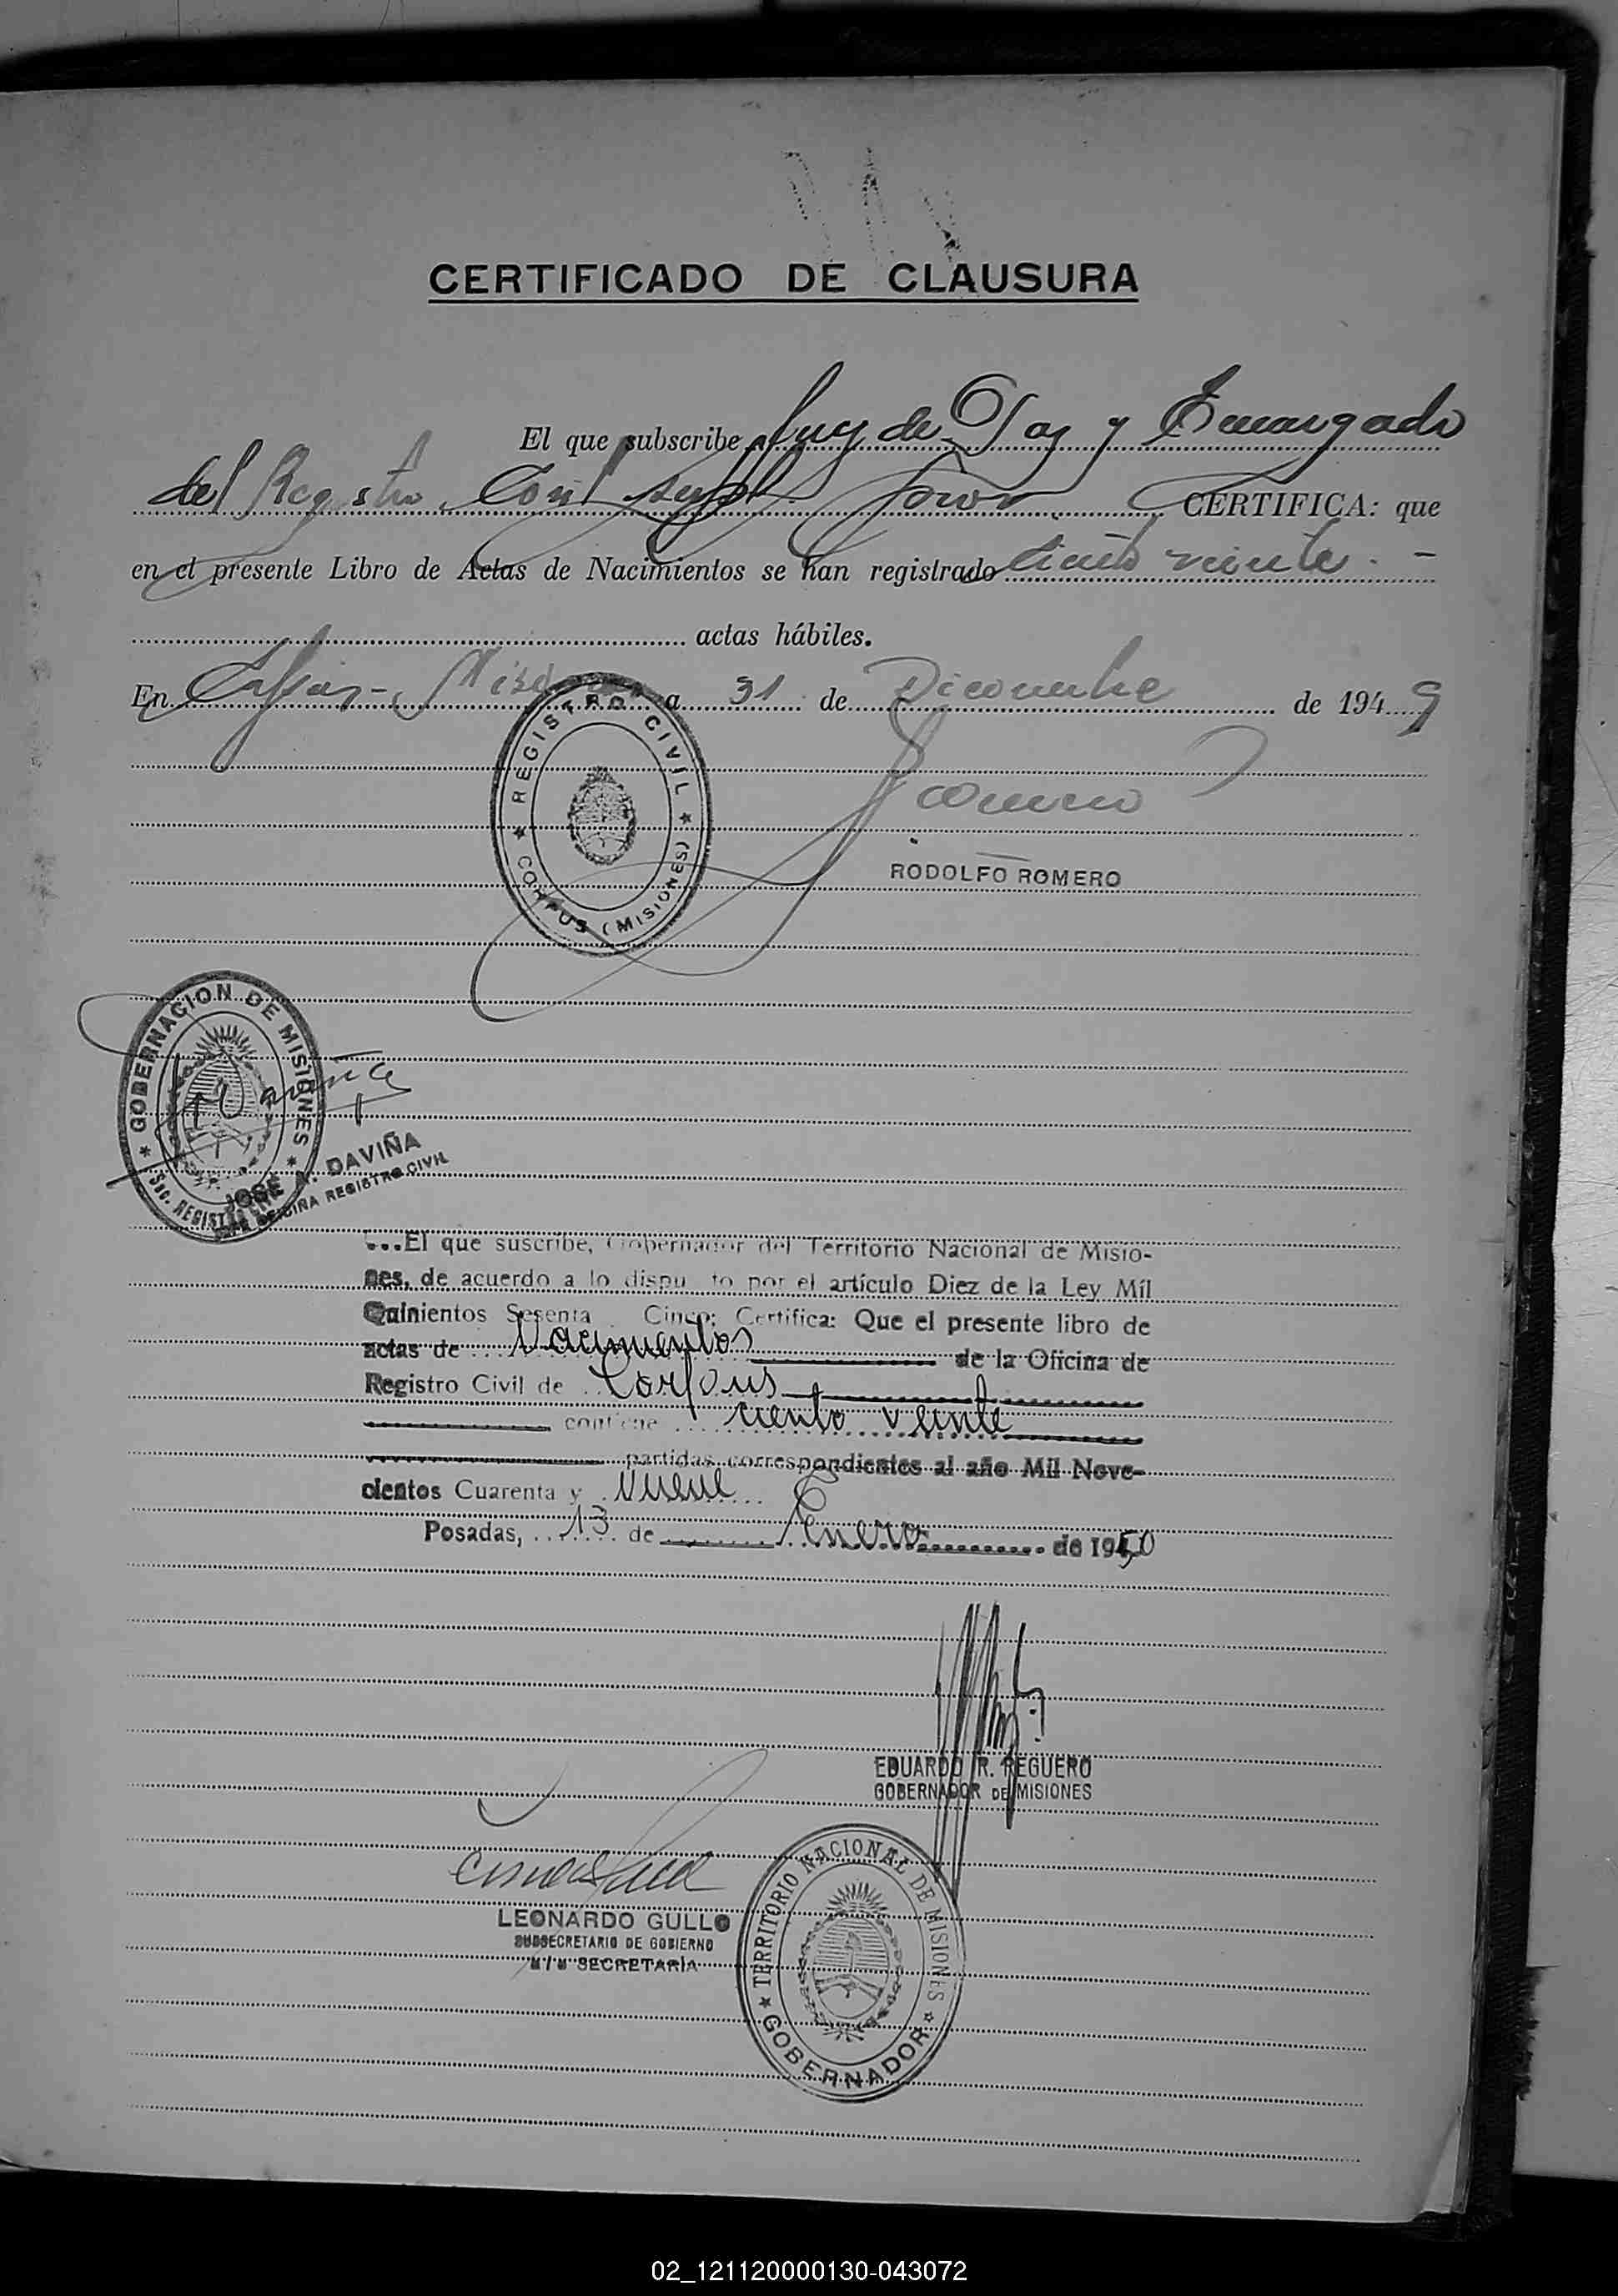 CERTIFICADO DE CLAUSURA
El que subscribe Juez de Paz y Encargado
del Registro Civil CERTIFICA: que
en el presente Libro de Actas de Nacimientos se han registrado ciento veinte. -
actas hábiles.
En Corpus - Misiones a 31 de Diciembre de 1949
REGISTRO CIVIL
CORPUS (MISIONES)
Romero
RODOLFO ROMERO
GOBERNACION DE MISIONES
Sec. REGISTRO
JOSÉ A. DAVIÑA
OFICINA REGISTRO CIVIL
...El que suscribe, Gobernador del Territorio Nacional de Misio-
nes, de acuerdo a lo dispu to por el artículo Diez de la Ley Mil
Quinientos Sesenta Cinco; Certifica: Que el presente libro de
actas de Nacimientos de la Oficina de
Registro Civil de Corpus
contiene ciento veinte
partidas correspondientes al año Mil Nove-
cientos Cuarenta y Nueve
Posadas, 13 de Enero de 1950
EDUARDO R. REGUERO
GOBERNADOR DE MISIONES
LEONARDO GULLO
SUBSECRETARIO DE GOBIERNO
SECRETARÍA
TERRITORIO NACIONAL DE MISIONES
GOBERNADOR
02_121120000130-043072